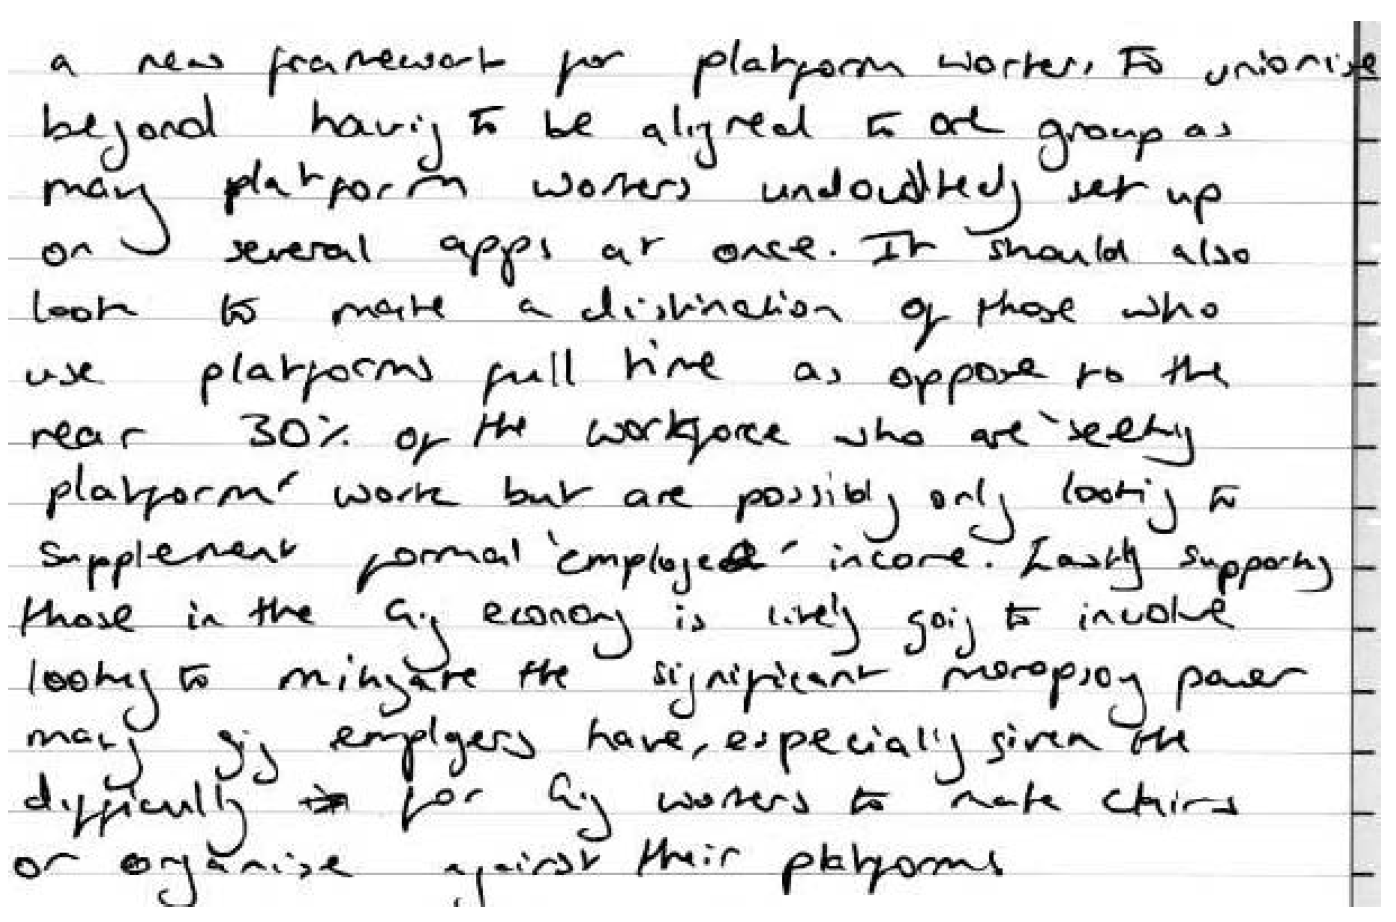 a new framework for platform workers to unionise
beyond having to be aligned to one group as
many platform workers undoubtedly set up
on several apps at once. It should also
look to make a distinction of those who
use platforms full time as oppose to the
near 30% of the workforce who are 'seeking
platform' work but are possibly only looking to
supplement formal 'employee' income. Lastly supporting
those in the Gig economy is likely going to involve
looking to mitigate the significant monopsony power
many gig employers have, especially given the
difficulty for Gig workers to make claims
or organise against their platforms